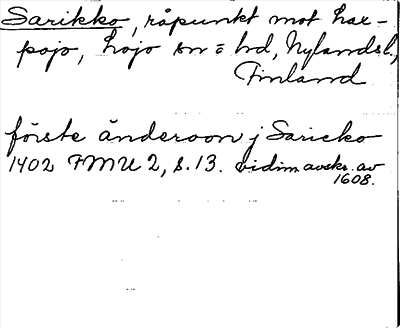 Sarikko, råpunkt mot har-
pojo, Lojo sn o hd, Nylandsl.,
Finland
förste änderoon j Saricko
1402 FMU 2, s. 13. vidim. avskr. av
1608.